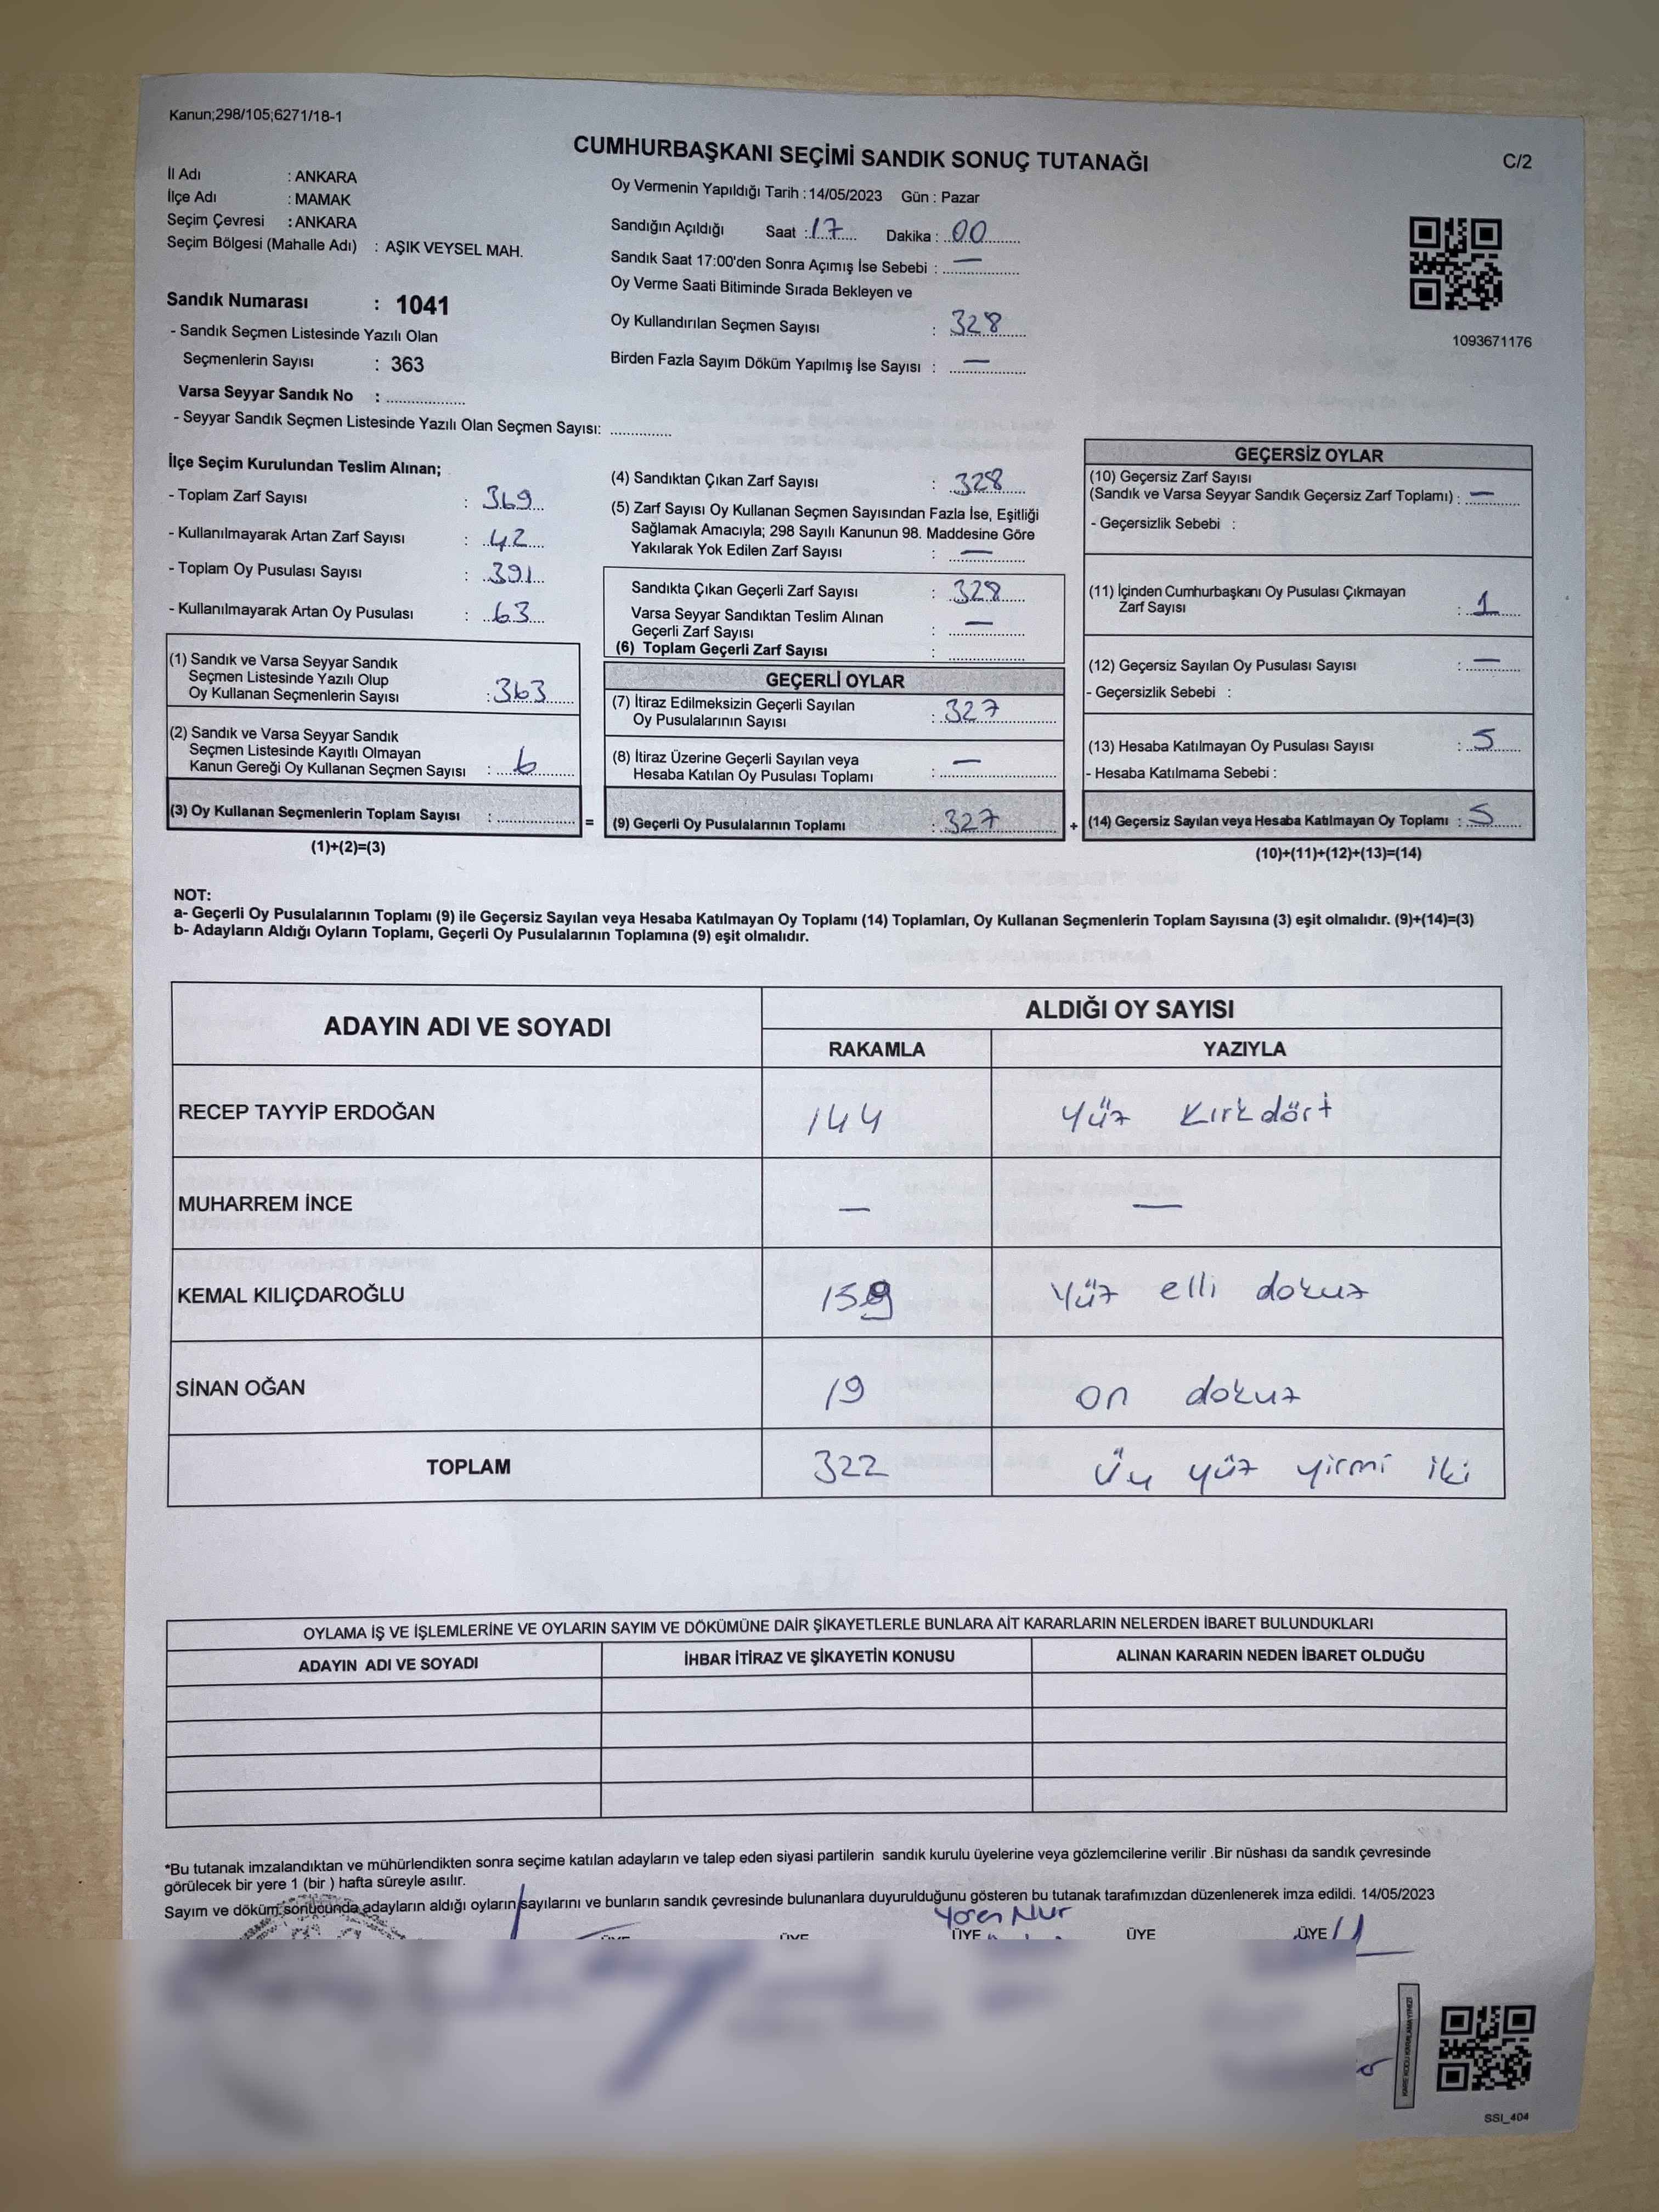 Kanun;298/105;6271/18-1
CUMHURBAŞKANI SEÇİMİ SANDIK SONUÇ TUTANAĞI
C/2
İl Adı : ANKARA
İlçe Adı : MAMAK
Seçim Çevresi : ANKARA
Seçim Bölgesi (Mahalle Adı) : AŞIK VEYSEL MAH.
Sandık Numarası : 1041
- Sandık Seçmen Listesinde Yazılı Olan
Seçmenlerin Sayısı : 363
Varsa Seyyar Sandık No : ..................
- Seyyar Sandık Seçmen Listesinde Yazılı Olan Seçmen Sayısı: ..............
Oy Vermenin Yapıldığı Tarih : 14/05/2023 Gün : Pazar
Sandığın Açıldığı Saat : 17 Dakika : 00
Sandık Saat 17:00'den Sonra Açımış İse Sebebi : —
Oy Verme Saati Bitiminde Sırada Bekleyen ve
Oy Kullandırılan Seçmen Sayısı : 328
Birden Fazla Sayım Döküm Yapılmış İse Sayısı : —
1093671176
İlçe Seçim Kurulundan Teslim Alınan;
- Toplam Zarf Sayısı : 369
- Kullanılmayarak Artan Zarf Sayısı : 42
- Toplam Oy Pusulası Sayısı : 391
- Kullanılmayarak Artan Oy Pusulası : 63
(1) Sandık ve Varsa Seyyar Sandık
Seçmen Listesinde Yazılı Olup
Oy Kullanan Seçmenlerin Sayısı : 363
(2) Sandık ve Varsa Seyyar Sandık
Seçmen Listesinde Kayıtlı Olmayan
Kanun Gereği Oy Kullanan Seçmen Sayısı : 6
(3) Oy Kullanan Seçmenlerin Toplam Sayısı : .................. =
(1)+(2)=(3)
(4) Sandıktan Çıkan Zarf Sayısı : 328
(5) Zarf Sayısı Oy Kullanan Seçmen Sayısından Fazla İse, Eşitliği
Sağlamak Amacıyla; 298 Sayılı Kanunun 98. Maddesine Göre
Yakılarak Yok Edilen Zarf Sayısı : —
Sandıkta Çıkan Geçerli Zarf Sayısı : 328
Varsa Seyyar Sandıktan Teslim Alınan
Geçerli Zarf Sayısı : —
(6) Toplam Geçerli Zarf Sayısı : ..................
GEÇERLİ OYLAR
(7) İtiraz Edilmeksizin Geçerli Sayılan
Oy Pusulalarının Sayısı : 327
(8) İtiraz Üzerine Geçerli Sayılan veya
Hesaba Katılan Oy Pusulası Toplamı : —
(9) Geçerli Oy Pusulalarının Toplamı : 327 +
GEÇERSİZ OYLAR
(10) Geçersiz Zarf Sayısı
(Sandık ve Varsa Seyyar Sandık Geçersiz Zarf Toplamı) : —
- Geçersizlik Sebebi :
(11) İçinden Cumhurbaşkanı Oy Pusulası Çıkmayan
Zarf Sayısı : 1
(12) Geçersiz Sayılan Oy Pusulası Sayısı : —
- Geçersizlik Sebebi :
(13) Hesaba Katılmayan Oy Pusulası Sayısı : 5
- Hesaba Katılmama Sebebi :
(14) Geçersiz Sayılan veya Hesaba Katılmayan Oy Toplamı : 5
(10)+(11)+(12)+(13)=(14)
NOT:
a- Geçerli Oy Pusulalarının Toplamı (9) ile Geçersiz Sayılan veya Hesaba Katılmayan Oy Toplamı (14) Toplamları, Oy Kullanan Seçmenlerin Toplam Sayısına (3) eşit olmalıdır. (9)+(14)=(3)
b- Adayların Aldığı Oyların Toplamı, Geçerli Oy Pusulalarının Toplamına (9) eşit olmalıdır.
ADAYIN ADI VE SOYADI ALDIĞI OY SAYISI
RAKAMLA YAZIYLA
RECEP TAYYİP ERDOĞAN 144 Yüz Kırkdört
MUHARREM İNCE — —
KEMAL KILIÇDAROĞLU 159 Yüz elli dokuz
SİNAN OĞAN 19 on dokuz
TOPLAM 322 Üç yüz yirmi iki
OYLAMA İŞ VE İŞLEMLERİNE VE OYLARIN SAYIM VE DÖKÜMÜNE DAİR ŞİKAYETLERLE BUNLARA AİT KARARLARIN NELERDEN İBARET BULUNDUKLARI
ADAYIN ADI VE SOYADI İHBAR İTİRAZ VE ŞİKAYETİN KONUSU ALINAN KARARIN NEDEN İBARET OLDUĞU
*Bu tutanak imzalandıktan ve mühürlendikten sonra seçime katılan adayların ve talep eden siyasi partilerin sandık kurulu üyelerine veya gözlemcilerine verilir .Bir nüshası da sandık çevresinde
görülecek bir yere 1 (bir ) hafta süreyle asılır.
Sayım ve döküm sonucunda adayların aldığı oyların sayılarını ve bunların sandık çevresinde bulunanlara duyurulduğunu gösteren bu tutanak tarafımızdan düzenlenerek imza edildi. 14/05/2023
Nur
ÜYE ÜYE ÜYE ÜYE ÜYE
KARE KODU KARALAMAYINIZ!
SSI_404